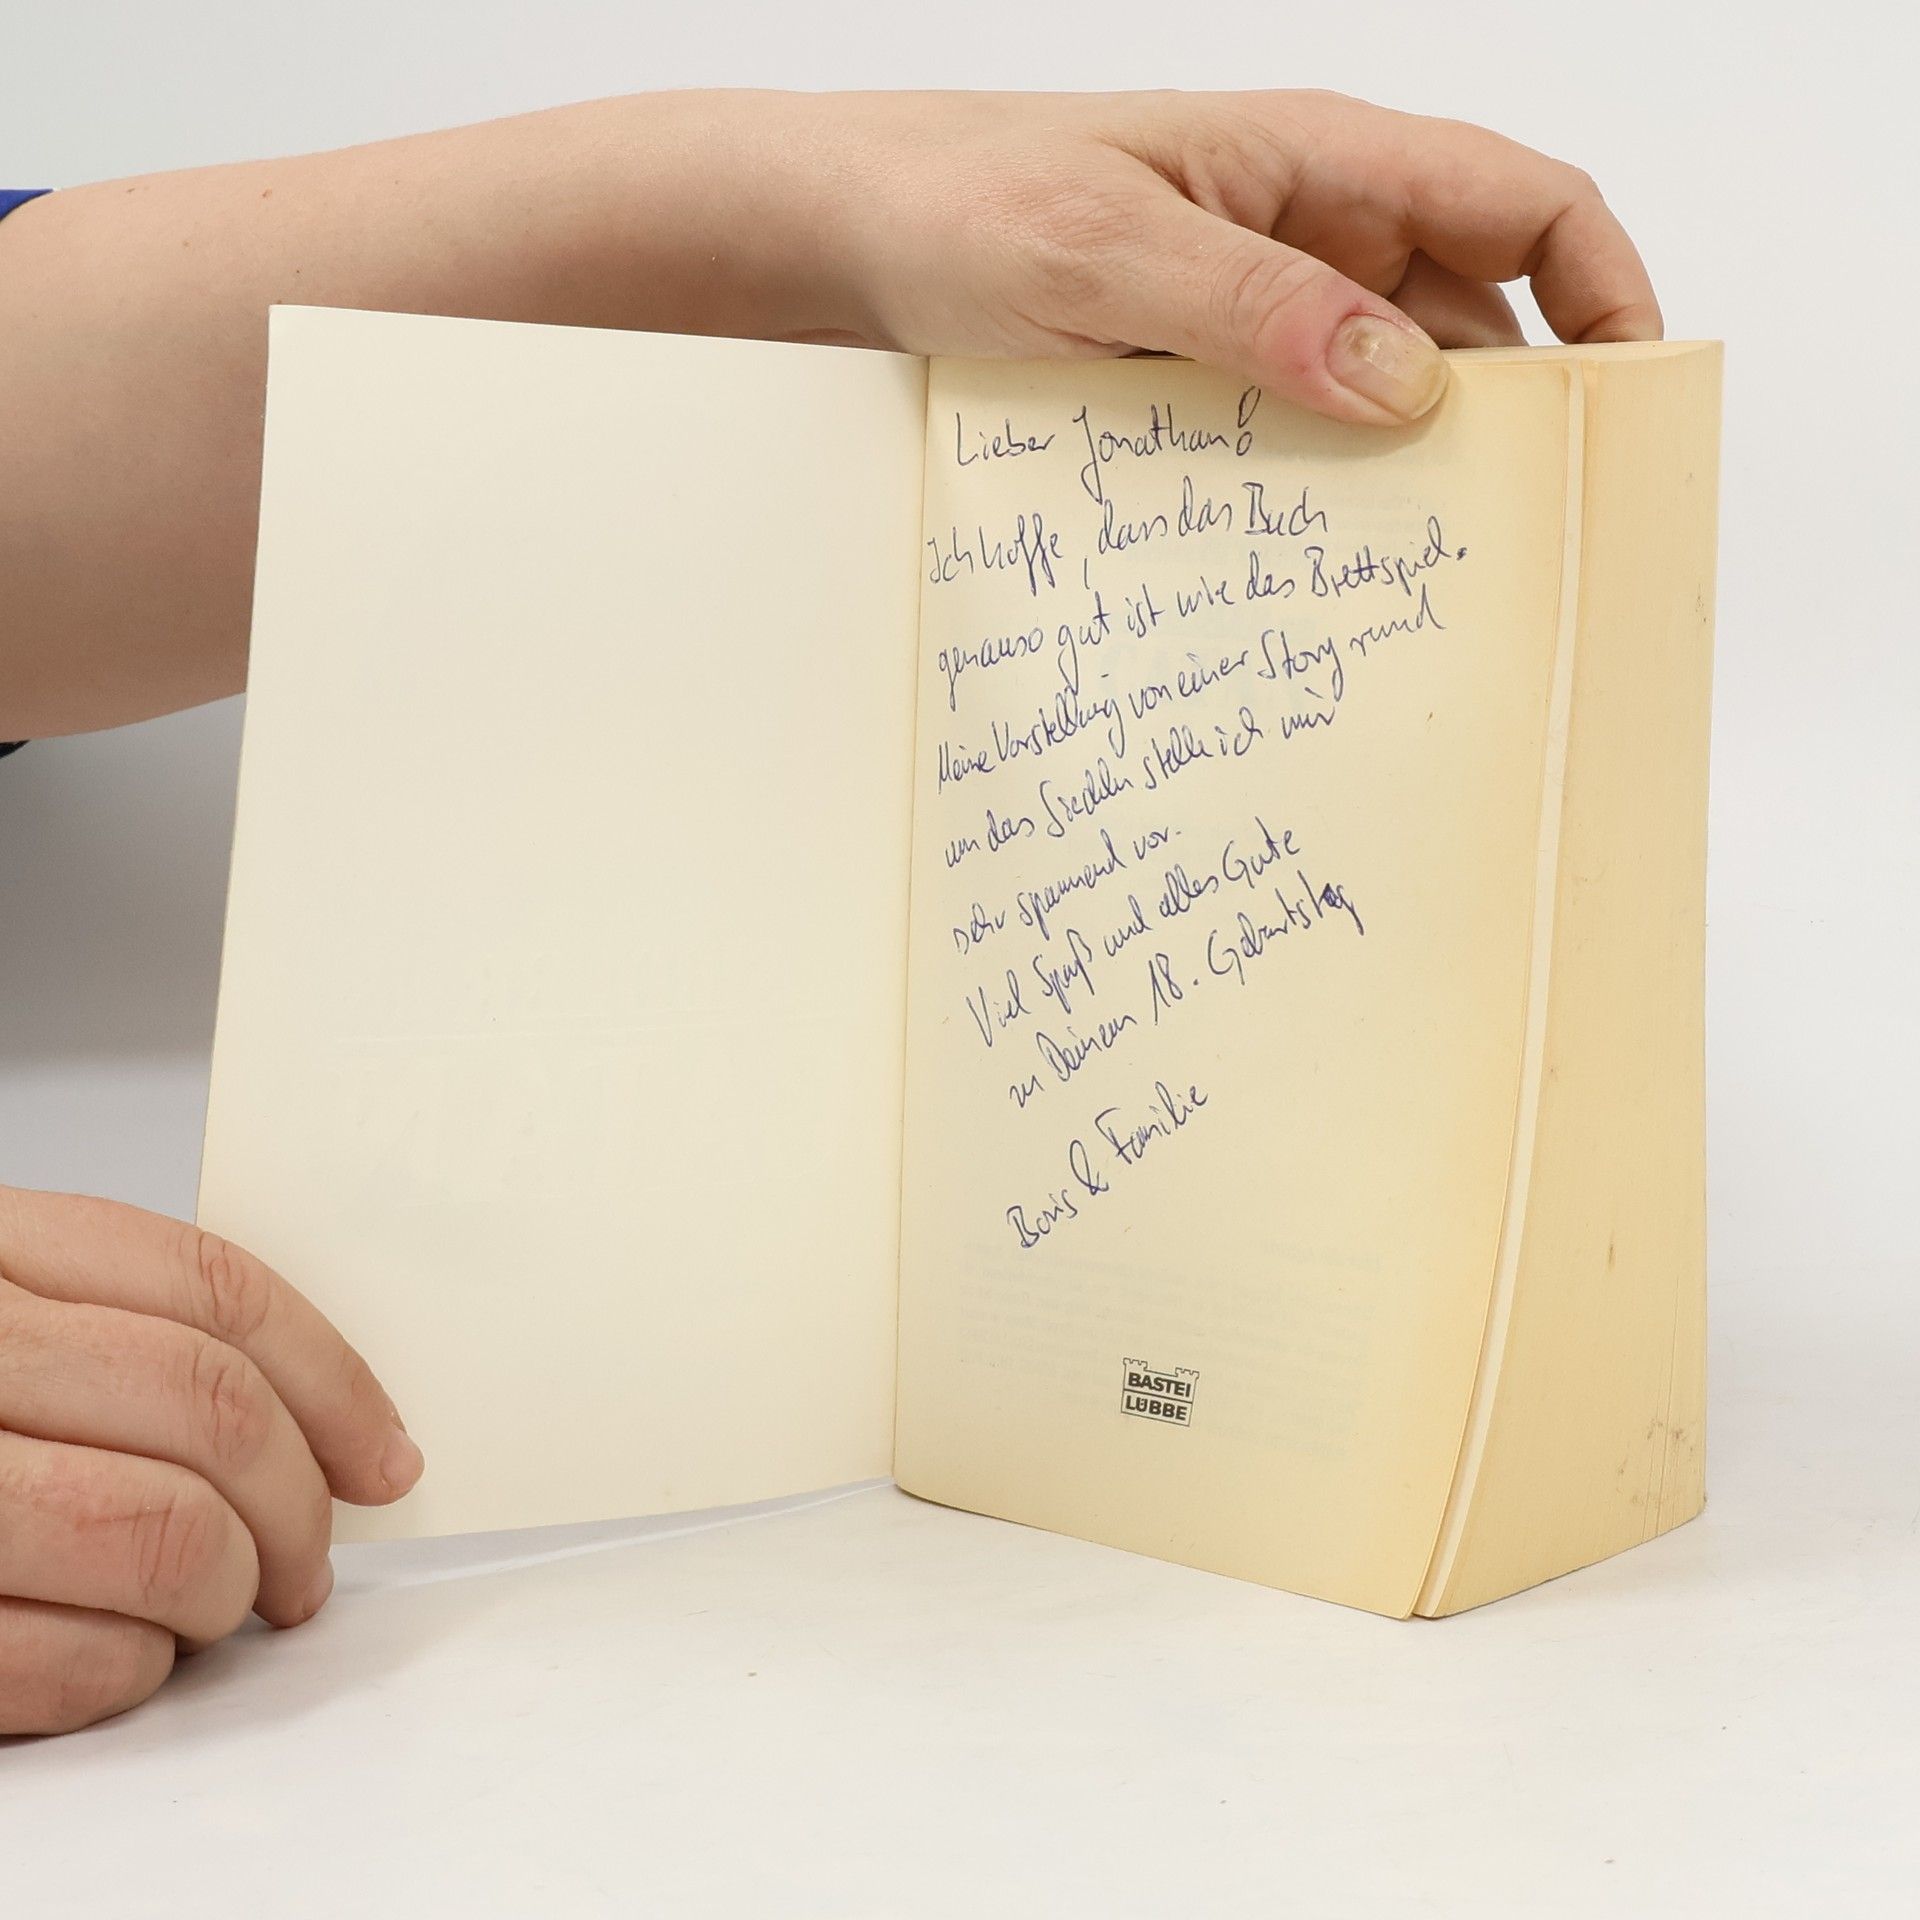 Lieber Jonathan!
Ich hoffe, dass das Buch
genauso gut ist wie das Brettspiel.
Meine Vorstellung von einer Story rund
um das Siedeln stelle ich mir
sehr spannend vor.
Viel Spaß und alles Gute
zu Deinem 18. Geburtstag
Boris & Familie
BASTEI
LÜBBE